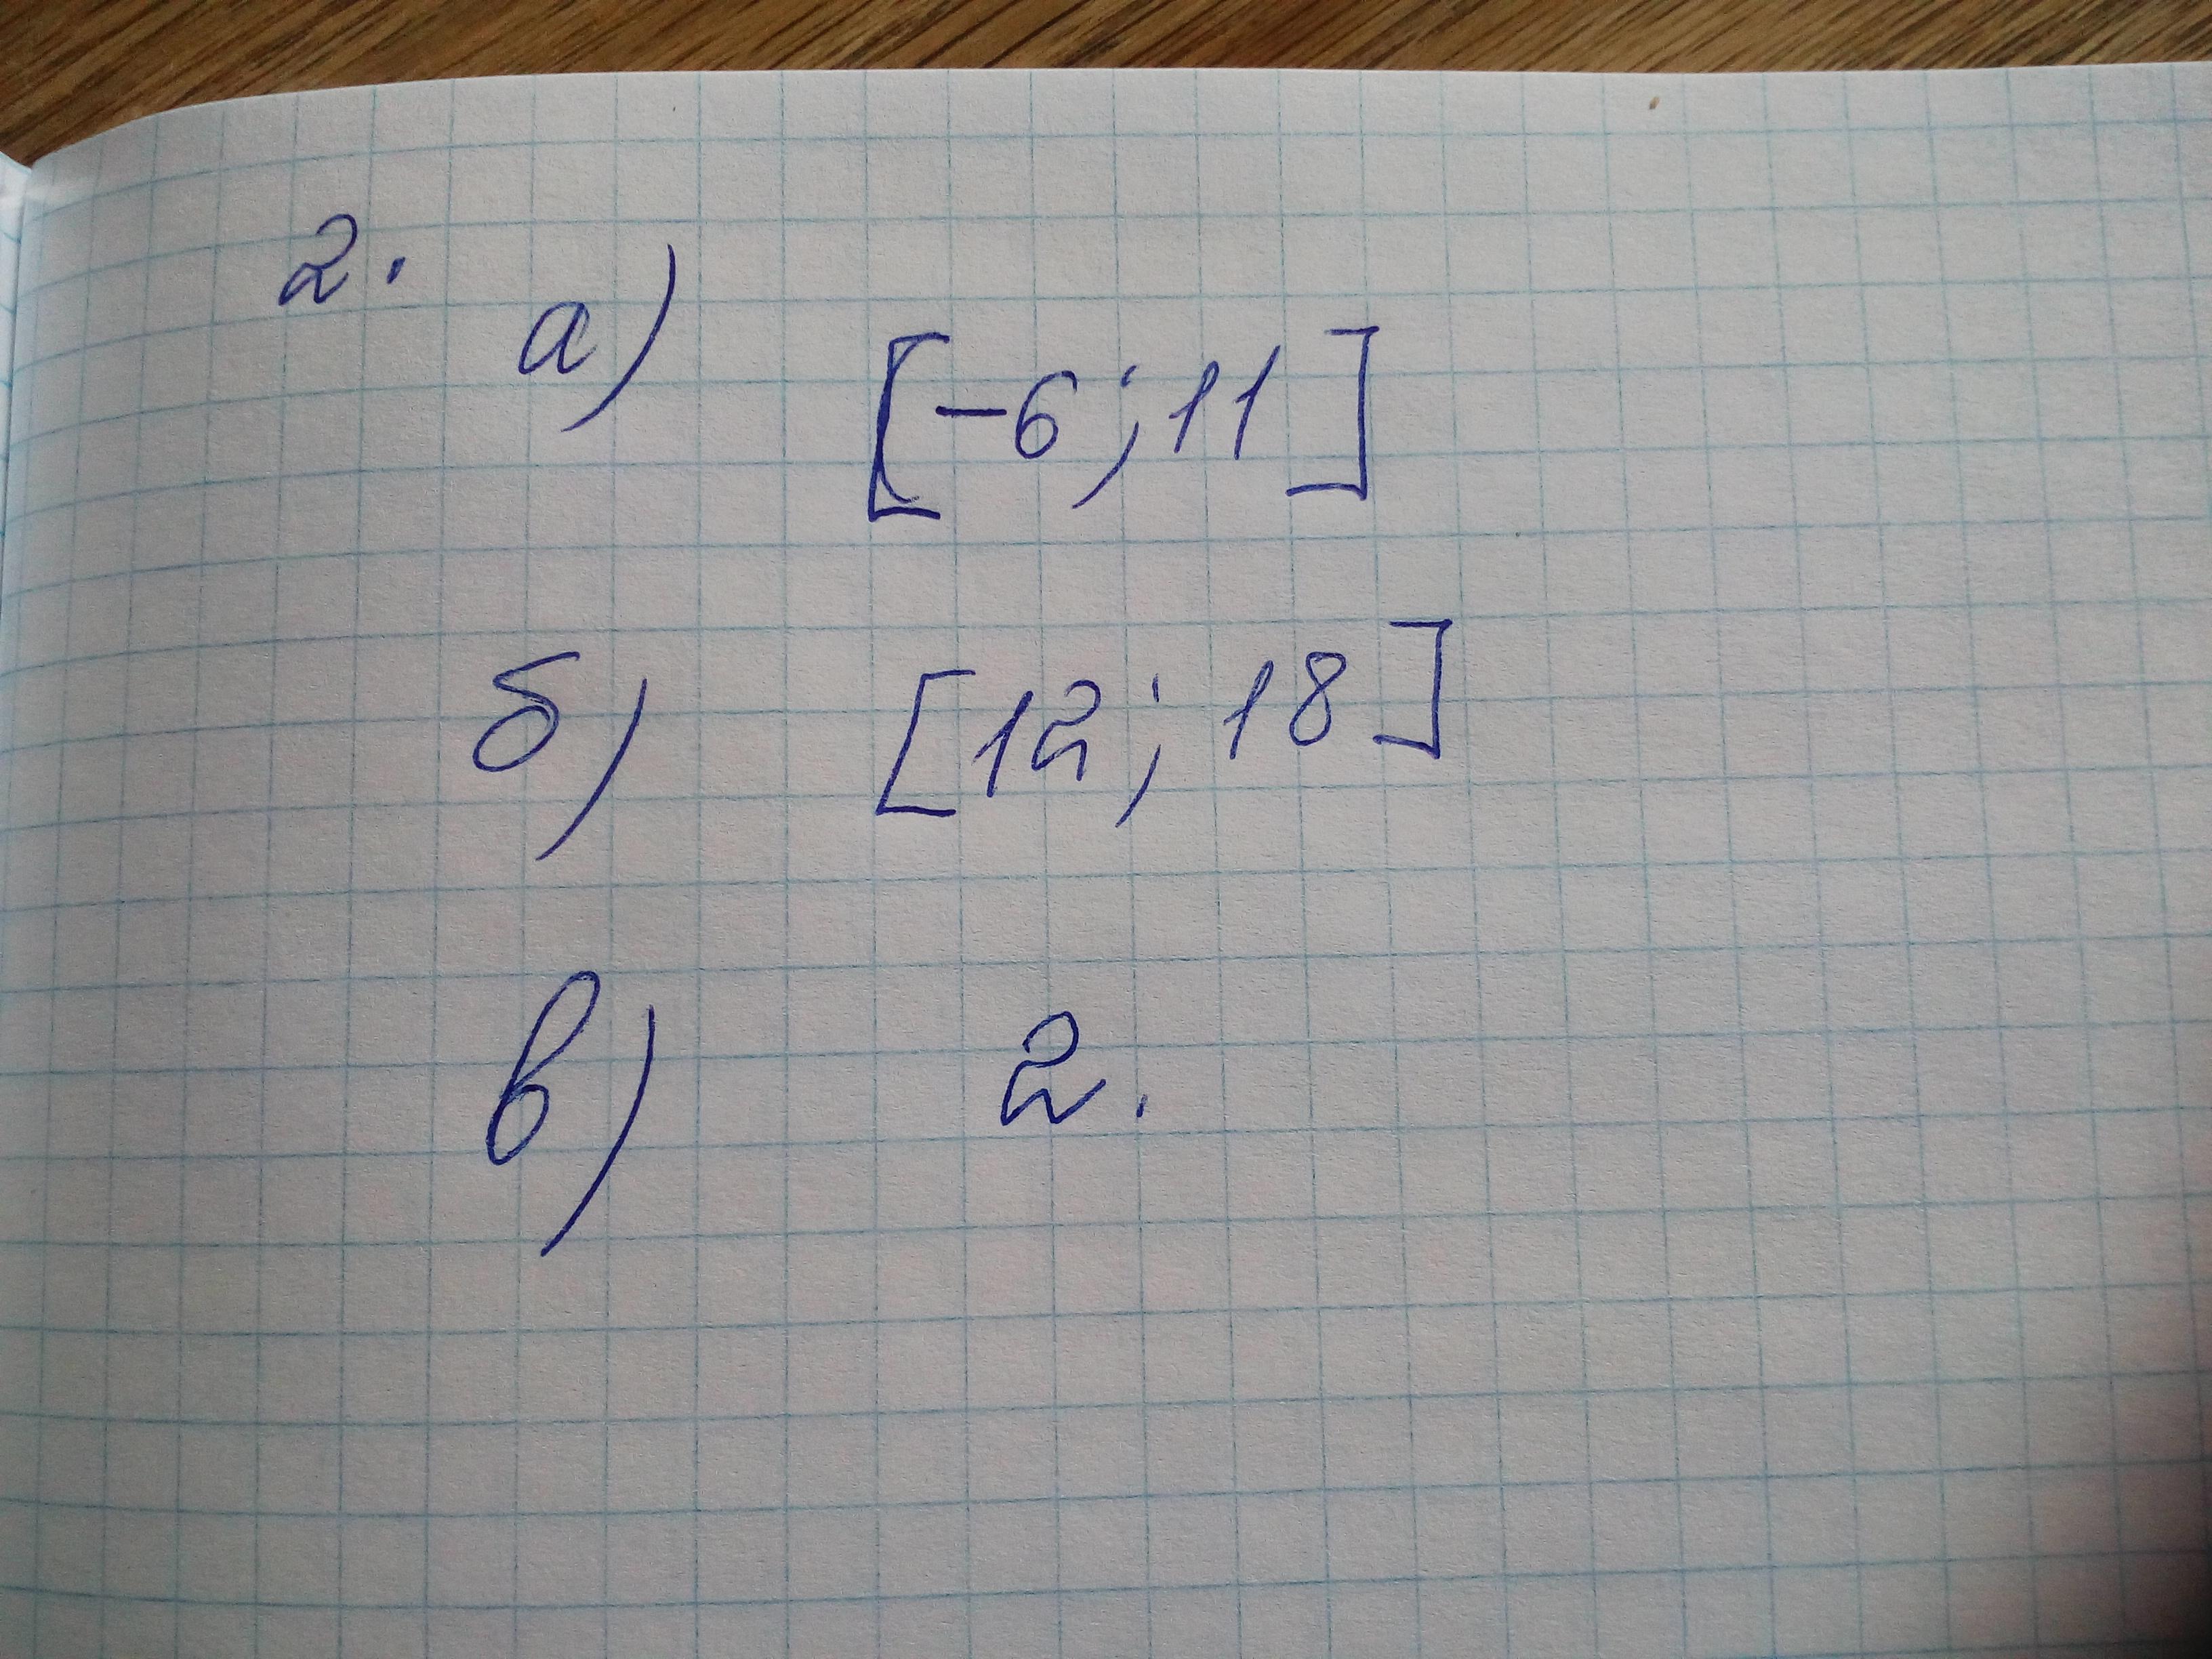 2.
а) [-6; 11]
б) [12; 18]
в) 2.